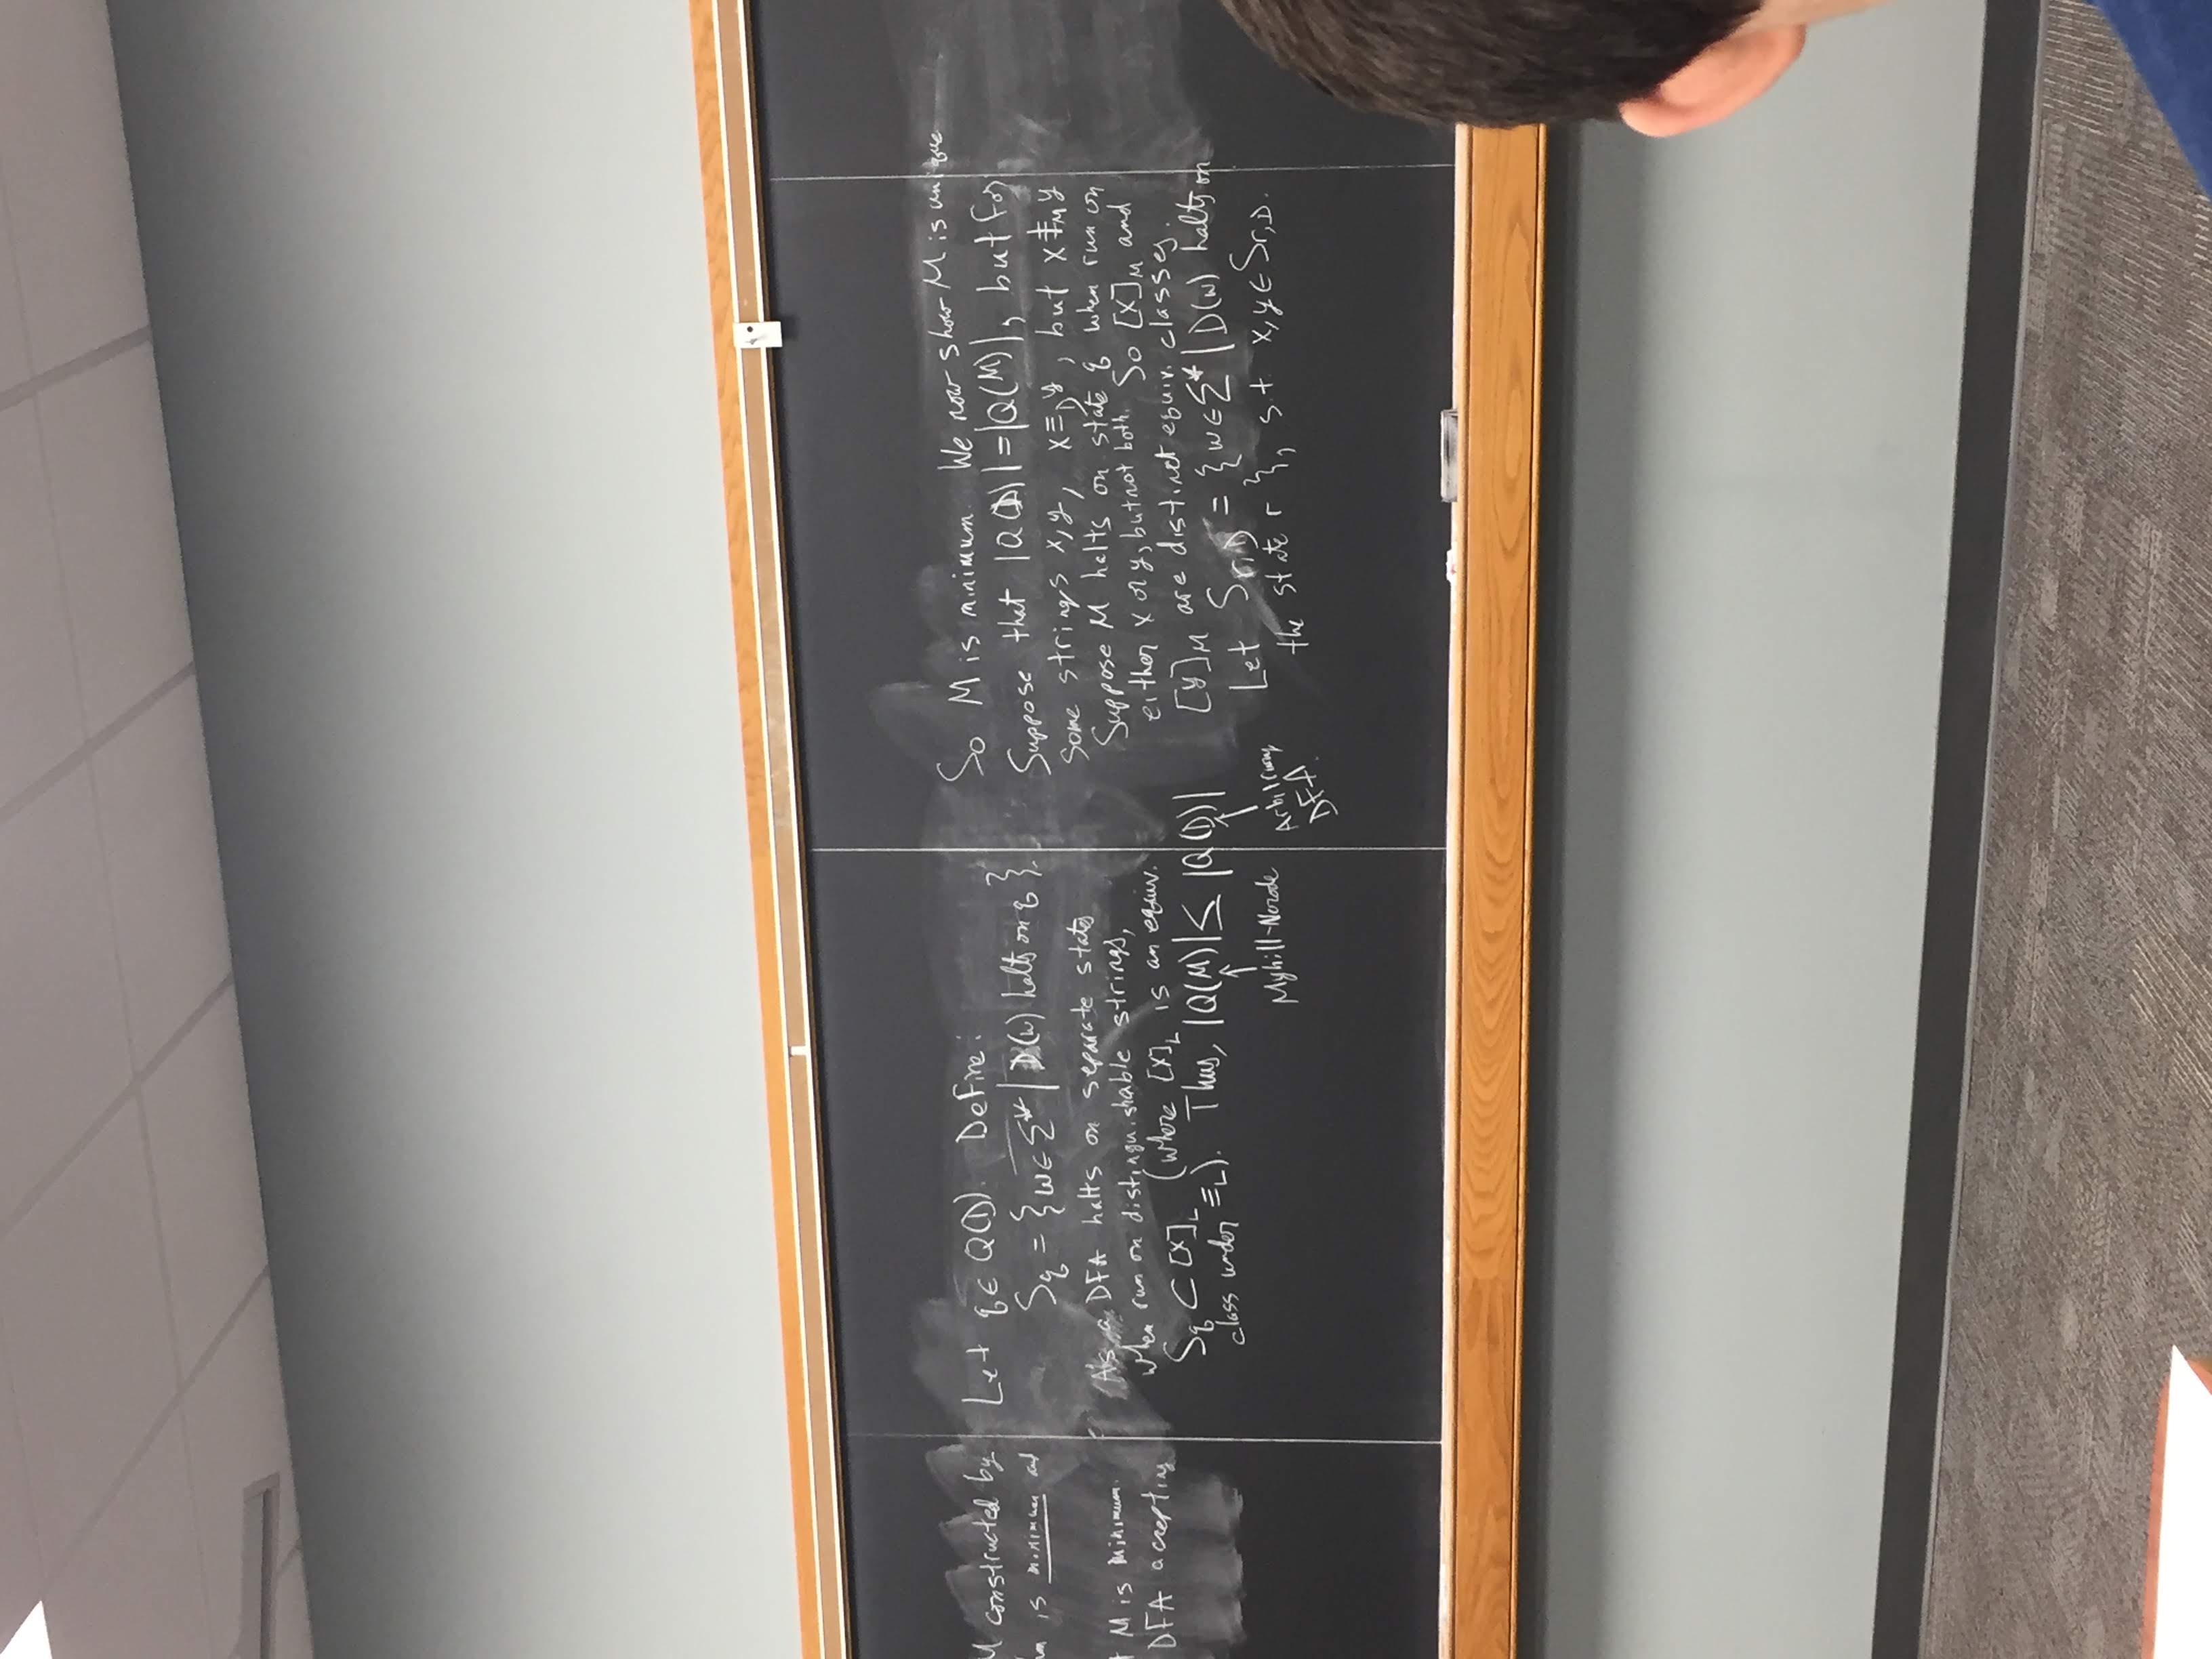 M constructed by
is minimum and
M is minimum.
DFA accepting
Let q ∈ Q(D). Define:
S_q = {w ∈ Σ* | D(w) halts on q}.
As a DFA halts on separate states
when run on distinguishable strings,
S_q ⊂ [x]_L (where [x]_L is an equiv.
class under ≡_L). Thus, |Q(M)| ≤ |Q(D)|
↑ ↑
Myhill-Nerode
Arbitrary
DFA.
So M is minimum. We now show M is unique
Suppose that |Q(D)| = |Q(M)|, but for
some strings x, y, x ≡_D y, but x ≢_M y
Suppose M halts on state q when run on
either x or y, but not both. So [x]_M and
[y]_M are distinct equiv. classes.
Let S_{r,D} = {w ∈ Σ* | D(w) halts on
the state r}, s.t. x, y ∈ S_{r,D}.